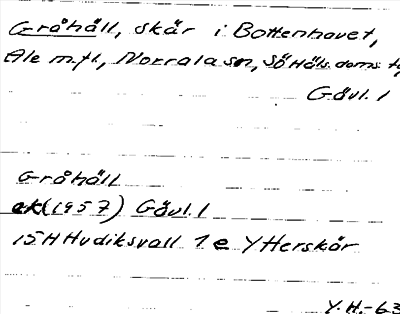 Gråhäll, skär i Bottenhavet,
Ale m.fl., Norrala sn, SöHäls. doms. t,
Gävl. l
Gråhäll
ek (1957) Gävl. l
15H Hudiksvall 1e Ytterskär
Y.H.-63